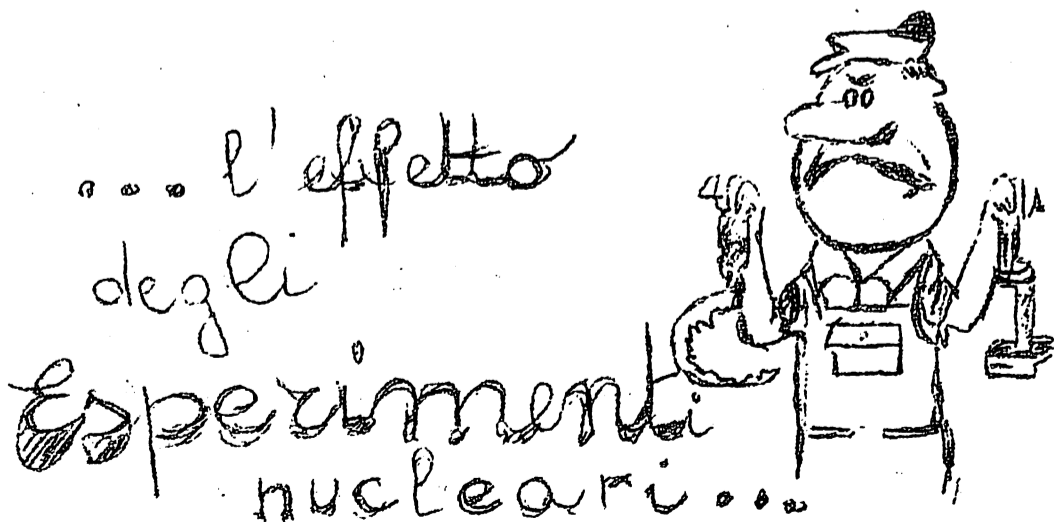 ... l'effetto
degli
Esperimenti
nucleari...